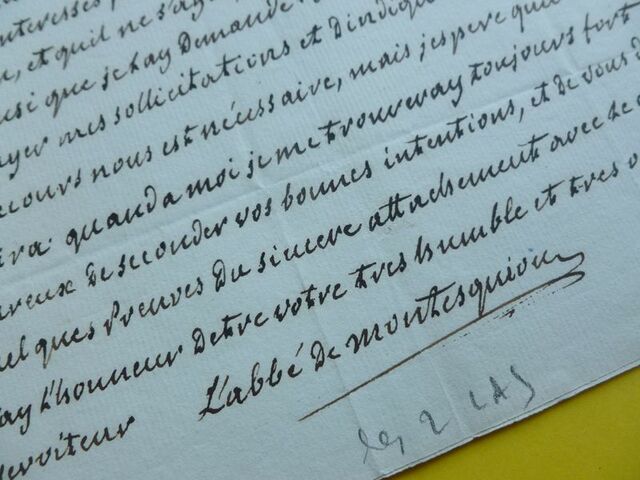 interesses
et quil ne s'ag
si que je l'ay Demandé
mes sollicitations et D'indiqu
ecours nous est nécessaire, mais j'espere que
ra. quand a moi je me trouveray toujours fort
ureux De seconder vos bonnes intentions, et De vous d
uelques Preuves Du sincere attachement avec le
ay l'honneur Detre votre tres humble et tres o
serviteur L'abbé De montesquiou
les 2 LAS